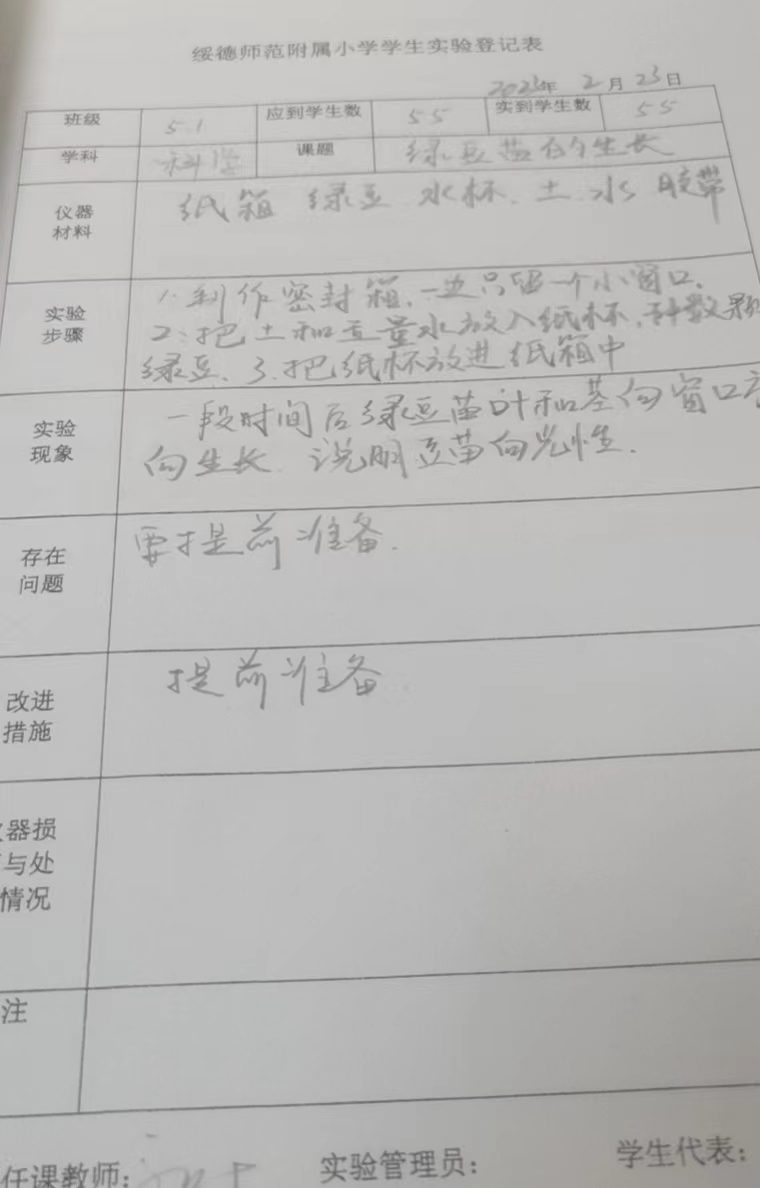 绥德师范附属小学学生实验登记表
2023年 2月23日
班级 5.1 应到学生数 55 实到学生数 55
学科 科学 课题 绿豆苗的生长
仪器
材料
纸箱 绿豆 水杯、土、水 胶带
实验
步骤
1.制作密封箱,一边只留一个小窗口.
2.把土和适量水放入纸杯,种数颗
绿豆、3.把纸杯放进纸箱中
实验
现象
一段时间后绿豆苗叶和茎向窗口方
向生长 说明豆苗向光性.
存在
问题
要提前准备.
改进
措施
提前准备
器损
与处
情况
注
任课教师: 实验管理员: 学生代表: